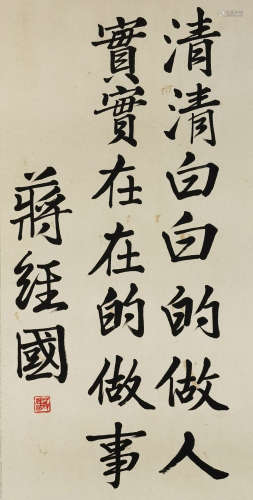 清清白白的做人
實實在在的做事
蔣經國